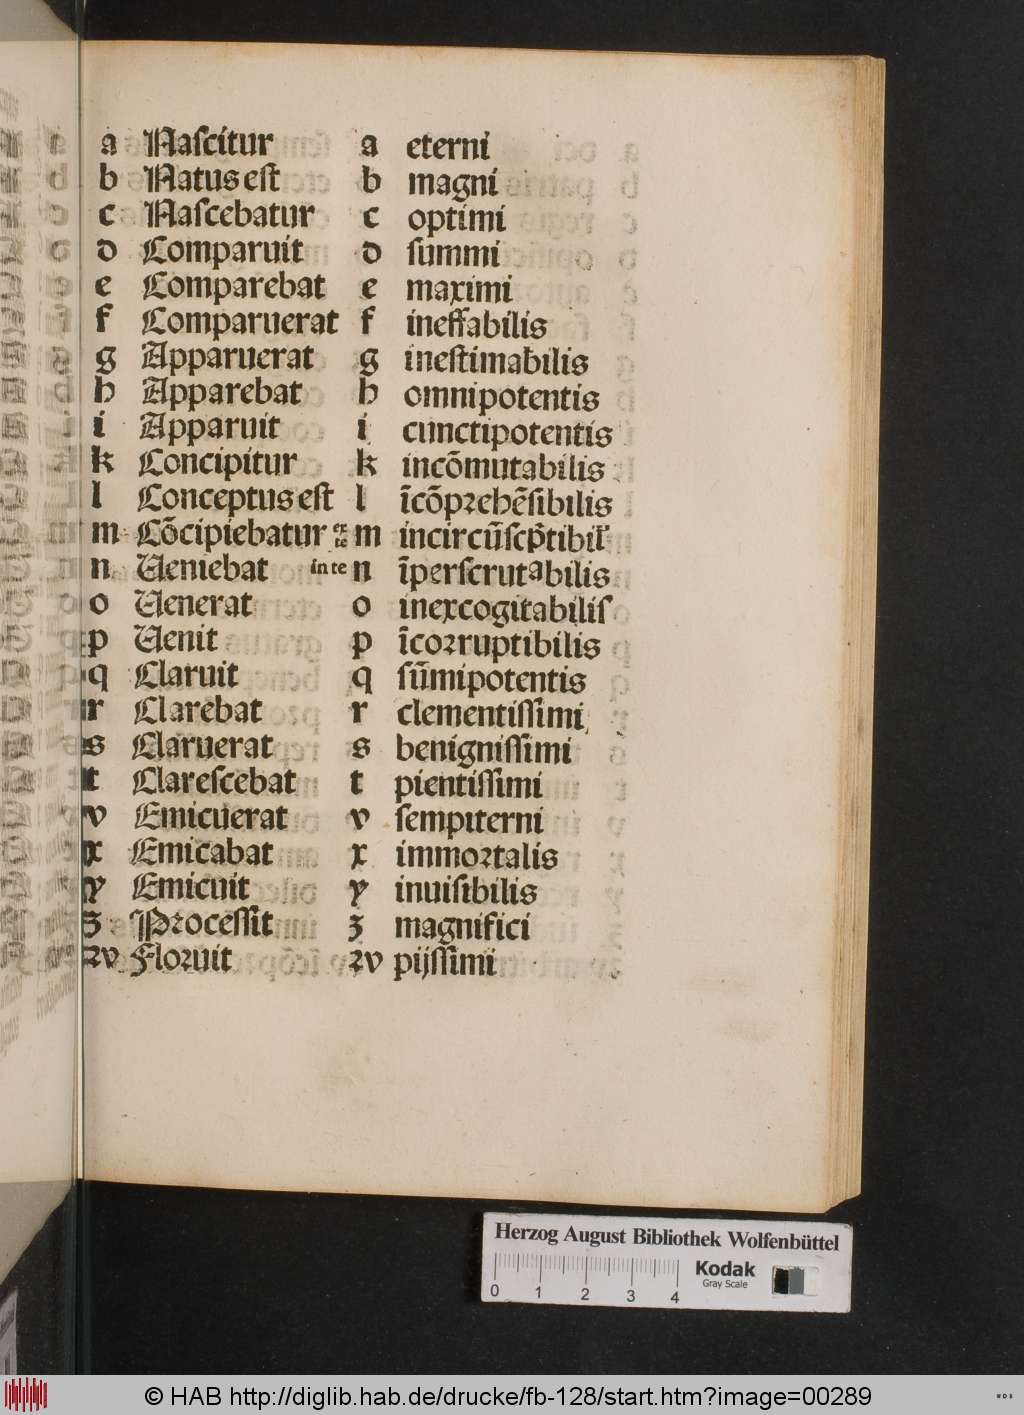 a Naſcitur a eterni
b Natus eſt b magni
c Naſcebatur c optimi
d Comparuit d ſummi
e Comparebat e maximi
f Comparuerat f ineffabilis
g Apparuerat g ineſtimabilis
h Apparebat h omnipotentis
i Apparuit i cunctipotentis
k Concipitur k incōmutabilis
l Conceptus eſt l īcōprehēſibilis
m Cōcipiebatur ex te m incircūſcp̄tibil᷒
n Ueniebat in te n īperſcrutabilis
o Uenerat o inexcogitabiliſ
p Uenit p īcorruptibilis
q Claruit q ſūmipotentis
r Clarebat r clementiſſimi
s Claruerat s benigniſſimi
t Clareſcebat t pientiſſimi
v Emicuerat v ſempiterni
x Emicabat x immortalis
y Emicuit y inuiſibilis
z Proceſſit z magnifici
ꝛv Floruit ꝛv pijſſimi
Herzog August Bibliothek Wolfenbüttel
Kodak
Gray Scale
0 1 2 3 4
© HAB http://diglib.hab.de/drucke/fb-128/start.htm?image=00289